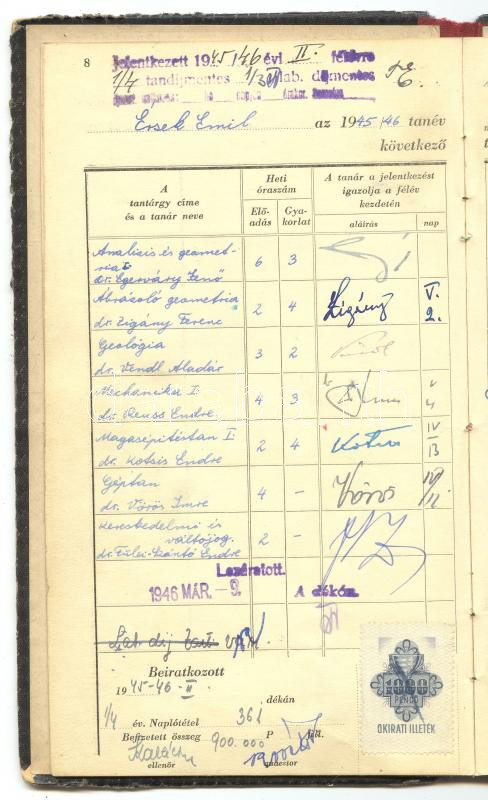 8
jelentkezett 1945/46 évi II. félévre
1/4 tandíjmentes 1/3 lab. díjmentes
Érsek Emil az 1945/46 tanév
következő
A tantárgy címe és a tanár neve
Heti óraszám
Elő-adás
Gya-korlat
A tanár a jelentkezést igazolja a félév kezdetén
aláírás
nap
Analizis és geomet-
ria I
dr. Egerváry Jenő 6 3
Ábrázoló geometria
dr. Zigány Ferenc 2 4 Zigány V. 2.
Geológia
dr. Vendl Aladár 3 2
Mechanika I.
dr. Reuss Endre 4 3
Magasépítéstan I.
dr. Kotsis Endre 2 4 Kotsis IV 13
Géptan
dr. Vörös Imre 4 – Vörös IV/11.
Kereskedelmi és
váltójog.
dr. Fülei-Szántó Endre 2 –
Lezáratott.
1946 MÁR. – 9. A dékán
Lab. díj
Beiratkozott
1945-46 II
dékán
1/4 év. Naplótétel 361
Befizetett összeg 900.000 P fill.
ellenőr
quaestor
1000
PENGŐ
OKIRATI ILLETÉK